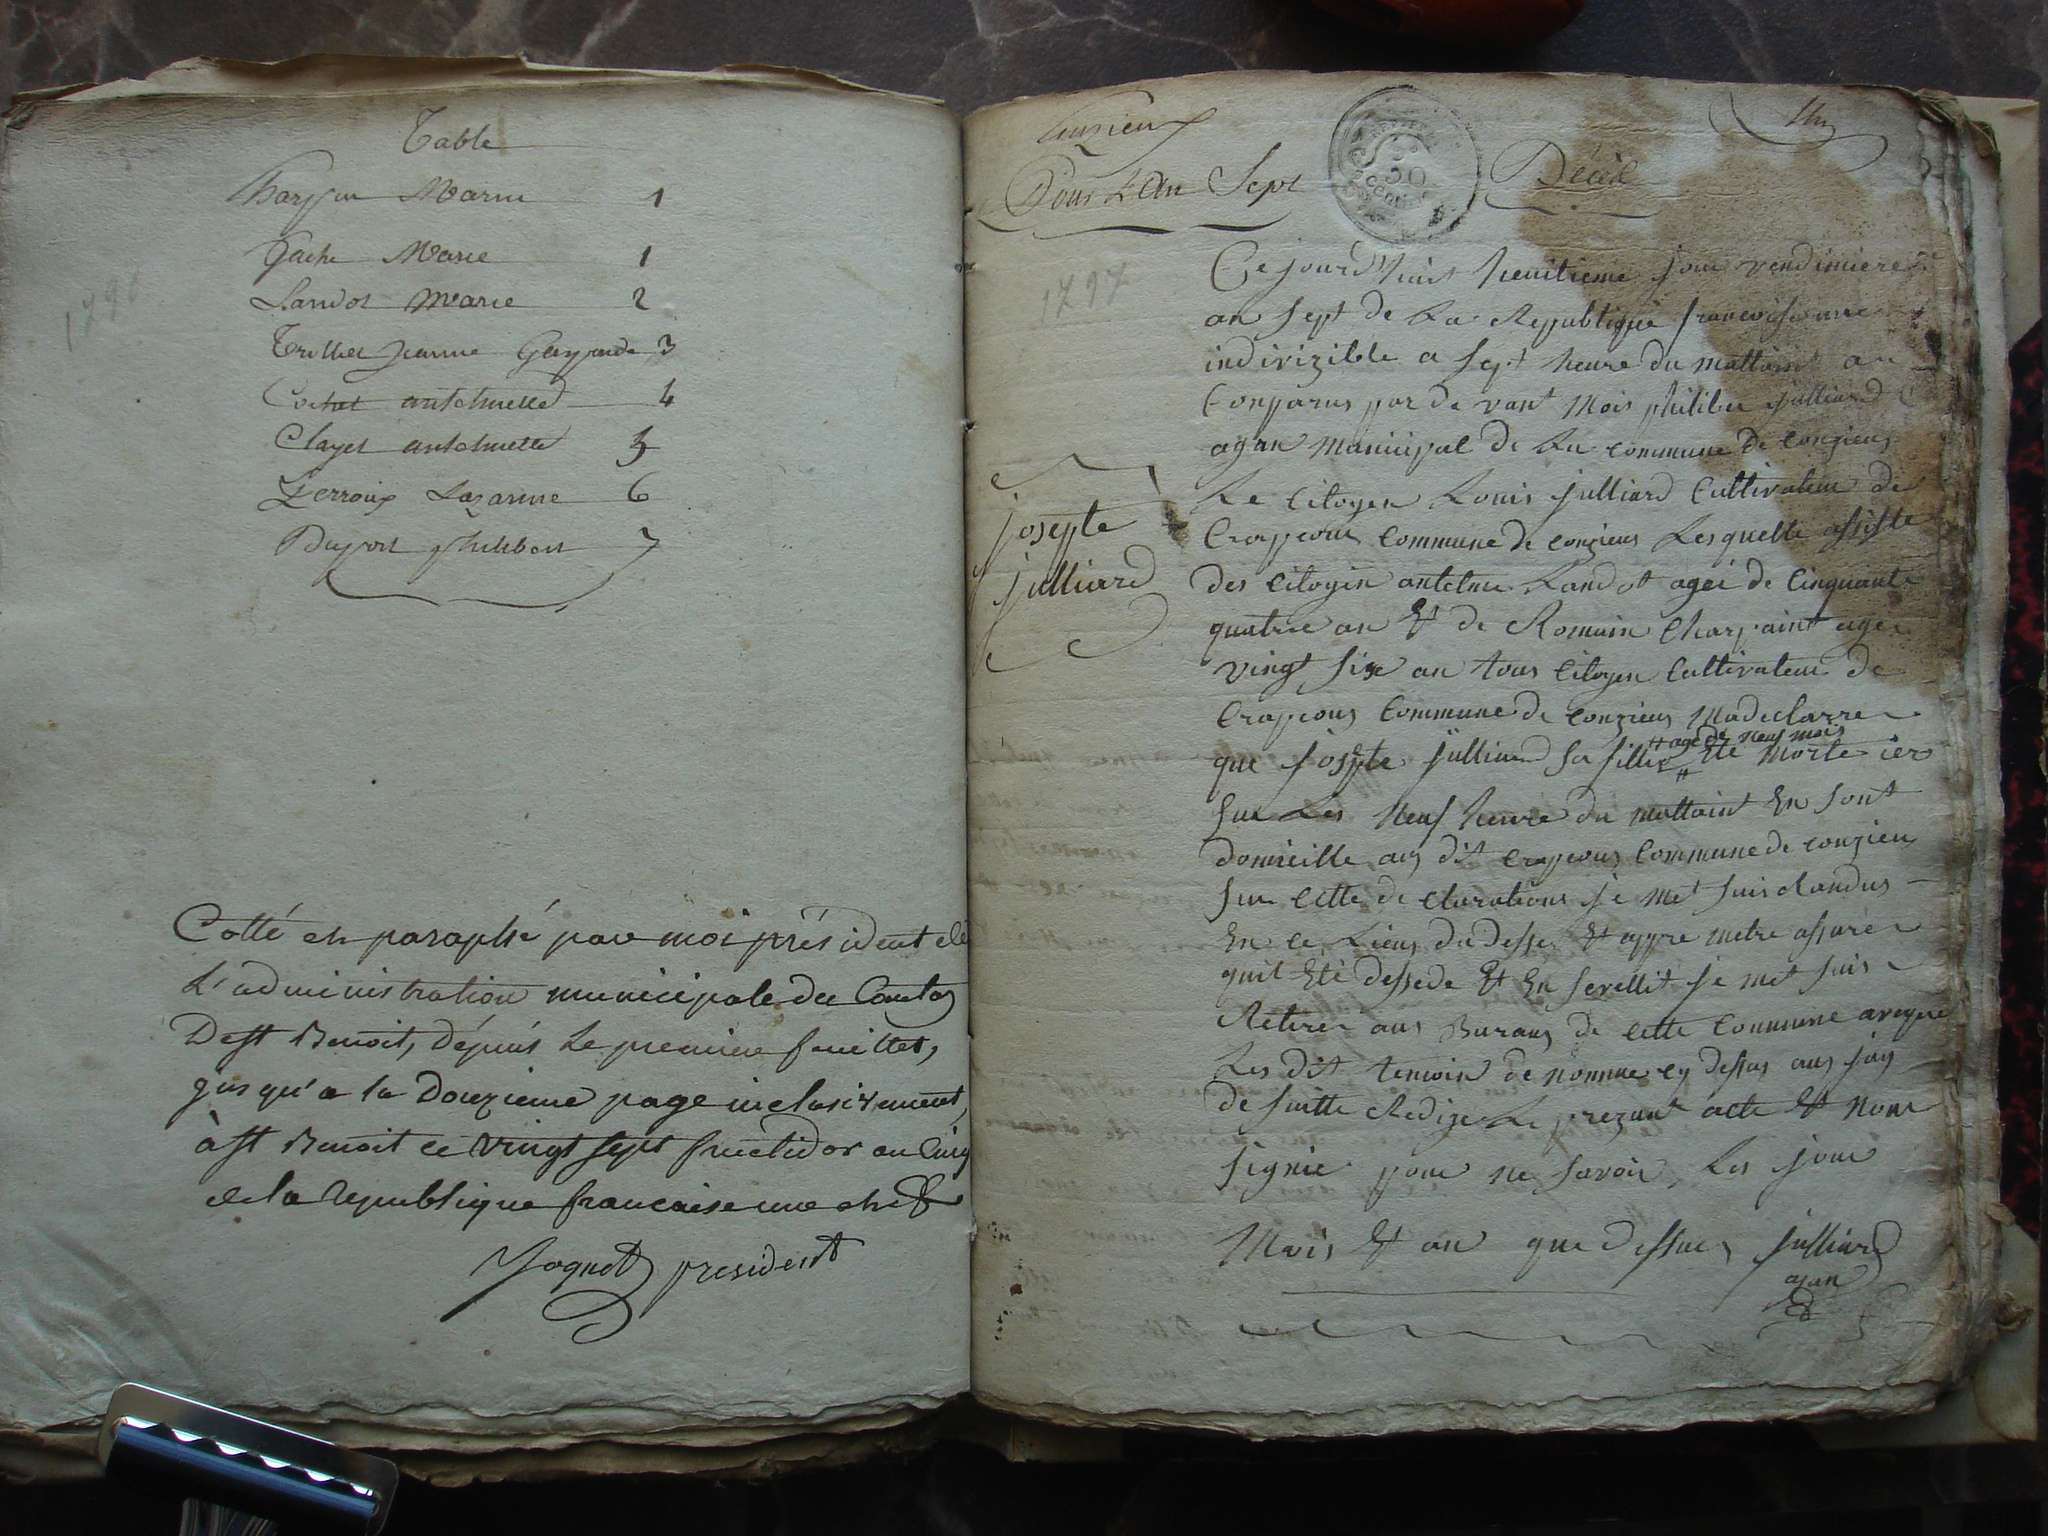 Table
Marie 1
Gache Marie 1
Landos Marie 2
Trollier Jeanne Gasparde 3
Cochet anthelmette 4
Clayet anthelmette 5
Perroux Lazarine 6
Dupont philibert 7
1796
Cotté et paraphé par moi président de
L'administration municipale du Canton
De st Benoit, dépuis Le premiere feuillet,
jusqu'a la Douzieme page inclusivement,
à st Benoit ce vingt sept fructidor an Cinq
de la Republique francaise une et
président
Conzieux
Pour L'an Sept
Décès
1797
josepte
julliard
Ce jourd'huit heuitieme jour vendimiere
an sept de La Republique francoise une
indivizible a sept heure du mattaint a
Comparus par de vant Mois philiber julliard
agan Municipal de La commune de conzieus
Le Citoyen Louis julliard Cultivateur de
Crapeous Commune de conzieus Lesquelle assiste
des Citoyin antelme Landot ageé de Cinquante
quatre an Et de Romain Charpaint age
vingt sixe an tous Citoyen Cultivateur de
Crapeous Commune de conzieus Madeclarre
que josepte julliard sa fille # Ete Morte ier
# age de neuf mois
sur Les Neuf heure du mattaint En sont
domicille aus dit crapeous Commune de conzieu
sur Cette de clarations je met suis
En ce Lieus du desse Et appre metre assurer
quil Eté dessede Et En sevellit je met suis
Retirer aus Buraus de Cette Commune aveque
Les dit temoin de nommer cy dessus aus jay
de suitte Redige Le prezant acte Et Nont
signie pour ne savoir, Les jour
Mois Et an que dessus julliard
agan